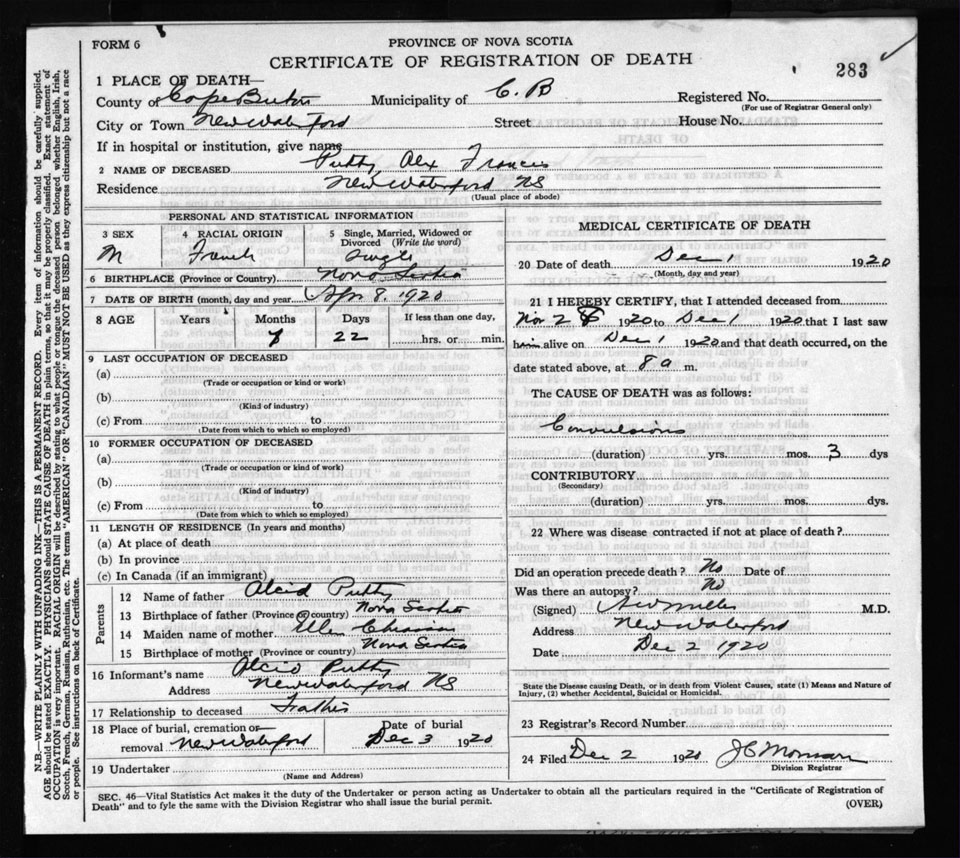 FORM 6
PROVINCE OF NOVA SCOTIA
CERTIFICATE OF REGISTRATION OF DEATH
283
1 PLACE OF DEATH—
County of Cape Breton Municipality of C. B Registered No.
(For use of Registrar General only)
City or Town New Waterford Street House No.
If in hospital or institution, give name
2 NAME OF DECEASED Alex Francis
Residence New Waterford NS
(Usual place of abode)
PERSONAL AND STATISTICAL INFORMATION
3 SEX
M
4 RACIAL ORIGIN
French
5 Single, Married, Widowed or Divorced (Write the word)
Single
6 BIRTHPLACE (Province or Country) Nova Scotia
7 DATE OF BIRTH (month, day and year) Apr 8. 1920
8 AGE Years Months Days If less than one day,
7 22 hrs. or min.
9 LAST OCCUPATION OF DECEASED
(a)
(Trade or occupation or kind or work)
(b)
(Kind of industry)
(c) From to
(Date from which to which so employed)
10 FORMER OCCUPATION OF DECEASED
(a)
(Trade or occupation or kind of work)
(b)
(Kind of industry)
(c) From to
(Date from which to which so employed)
11 LENGTH OF RESIDENCE (In years and months)
(a) At place of death
(b) In province
(c) In Canada (if an immigrant)
Parents
12 Name of father Alcid
13 Birthplace of father (Province or country) Nova Scotia
14 Maiden name of mother Ellen
15 Birthplace of mother (Province or country) Nova Scotia
16 Informant's name Alcid
Address New Waterford NS
17 Relationship to deceased Father
18 Place of burial, cremation or removal New Waterford
Date of burial
Dec 3 1920
19 Undertaker
(Name and Address)
MEDICAL CERTIFICATE OF DEATH
20 Date of death Dec 1 1920
(Month, day and year)
21 I HEREBY CERTIFY, that I attended deceased from
Nov 28 1920 to Dec 1 1920 that I last saw
him alive on Dec 1 1920 and that death occurred, on the
date stated above, at 8 a m.
The CAUSE OF DEATH was as follows:
Convulsions
(duration) yrs. mos. 3 dys
CONTRIBUTORY
(Secondary)
(duration) yrs. mos. dys.
22 Where was disease contracted if not at place of death?
Did an operation precede death? No Date of
Was there an autopsy? No
(Signed) M.D.
Address New Waterford
Date Dec 2 1920
State the Disease causing Death, or in death from Violent Causes, state (1) Means and Nature of
Injury, (2) whether Accidental, Suicidal or Homicidal.
23 Registrar's Record Number
24 Filed Dec 2 1920
Division Registrar
SEC. 46—Vital Statistics Act makes it the duty of the Undertaker or person acting as Undertaker to obtain all the particulars required in the "Certificate of Registration of
Death" and to fyle the same with the Division Registrar who shall issue the burial permit.
(OVER)
N.B.—WRITE PLAINLY WITH UNFADING INK—THIS IS A PERMANENT RECORD. Every item of information should be carefully supplied.
AGE should be stated EXACTLY. PHYSICIANS should STATE CAUSE OF DEATH in plain terms, so that it may be properly classified. Exact statement of
OCCUPATION is very important. RACIAL ORIGIN will be described by stating to what people or tongue the deceased person belonged whether English, Irish,
Scotch, French, German, Russian, Ruthenian, etc. The terms "AMERICAN" OR "CANADIAN" MUST NOT BE USED as they express citizenship but not a race
or people. See instructions on back of Certificate.